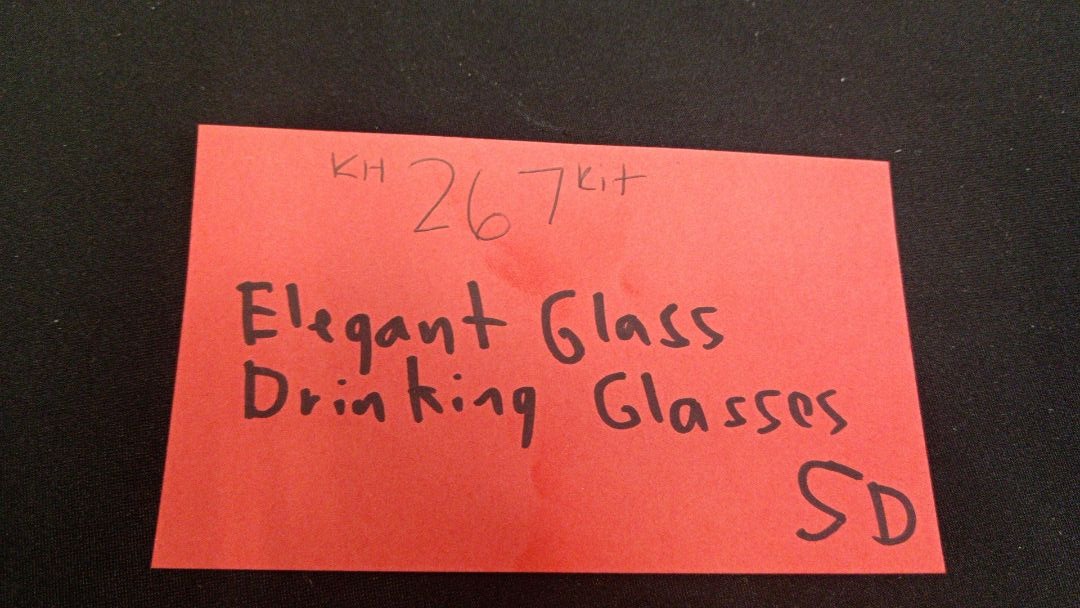 KH 267 Kit
Elegant Glass
Drinking Glasses
SD